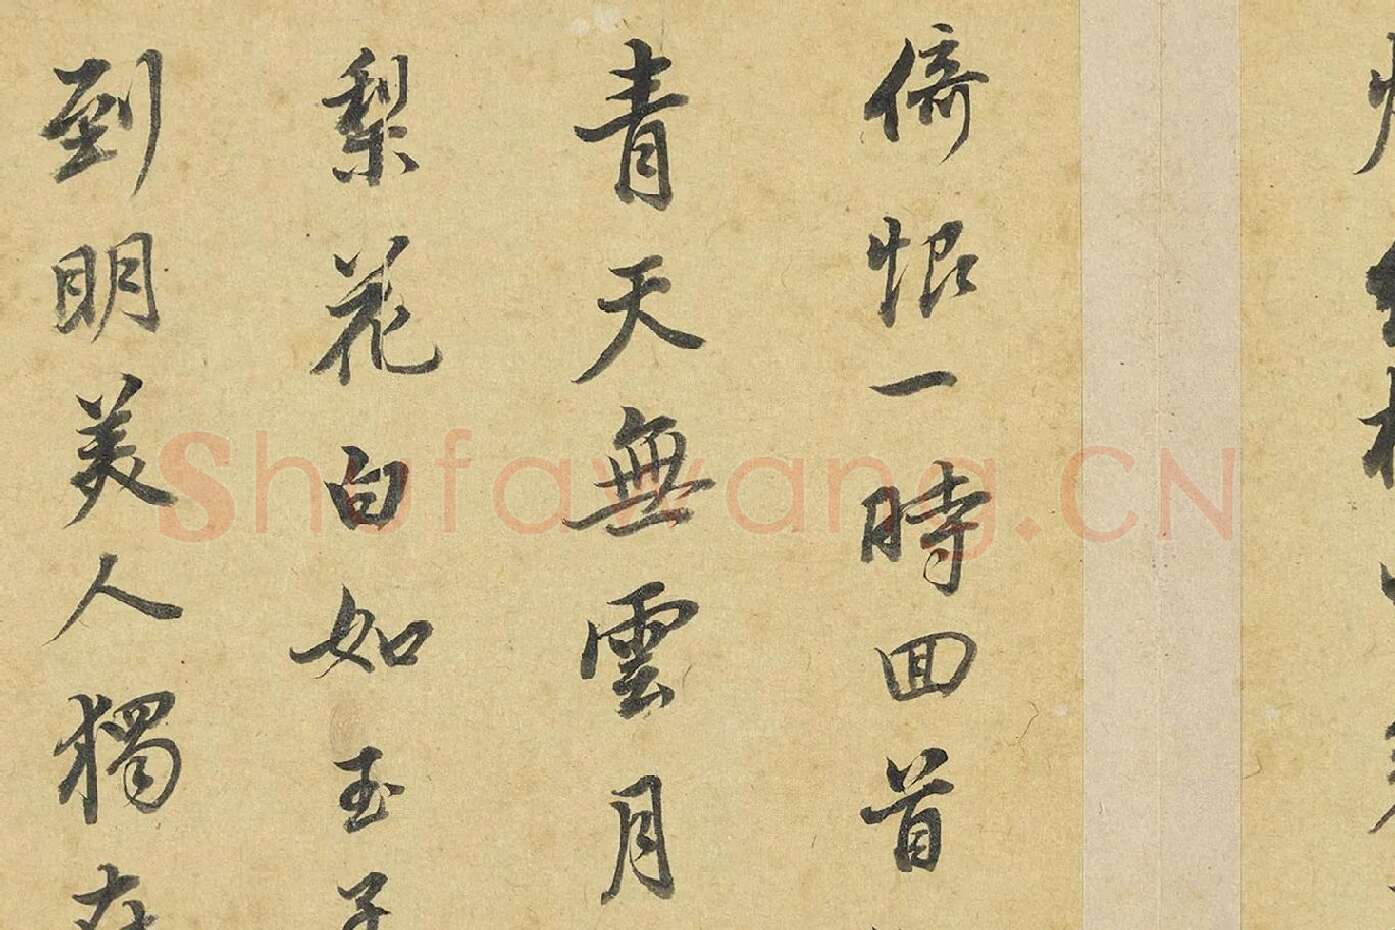 倚恨一時回首
青天無雲月
梨花白如玉子
到明美人獨在
Shufawang.CN